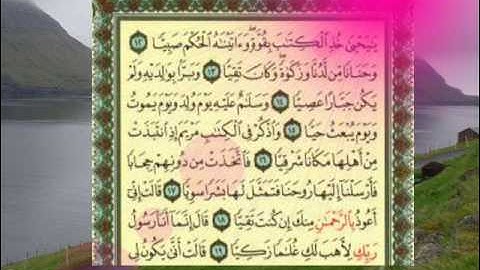 يَٰيَحْيَىٰ خُذِ ٱلْكِتَٰبَ بِقُوَّةٍ ۖ وَءَاتَيْنَٰهُ ٱلْحُكْمَ صَبِيًّا ١٢
وَحَنَانًا مِّن لَّدُنَّا وَزَكَوٰةً ۖ وَكَانَ تَقِيًّا ١٣ وَبَرًّۢا بِوَٰلِدَيْهِ وَلَمْ
يَكُن جَبَّارًا عَصِيًّا ١٤ وَسَلَٰمٌ عَلَيْهِ يَوْمَ وُلِدَ وَيَوْمَ يَمُوتُ
وَيَوْمَ يُبْعَثُ حَيًّا ١٥ وَٱذْكُرْ فِى ٱلْكِتَٰبِ مَرْيَمَ إِذِ ٱنتَبَذَتْ
مِنْ أَهْلِهَا مَكَانًا شَرْقِيًّا ١٦ فَٱتَّخَذَتْ مِن دُونِهِمْ حِجَابًا
فَأَرْسَلْنَآ إِلَيْهَا رُوحَنَا فَتَمَثَّلَ لَهَا بَشَرًا سَوِيًّا ١٧ قَالَتْ إِنِّىٓ
أَعُوذُ بِٱلرَّحْمَٰنِ مِنكَ إِن كُنتَ تَقِيًّا ١٨ قَالَ إِنَّمَآ أَنَا۠ رَسُولُ
رَبِّكِ لِأَهَبَ لَكِ غُلَٰمًا زَكِيًّا ١٩ قَالَتْ أَنَّىٰ يَكُونُ لِى